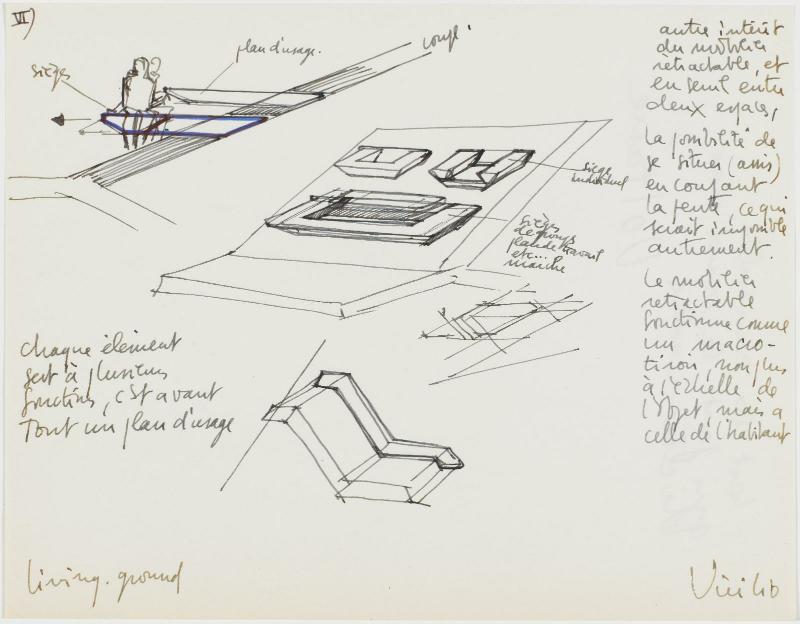 VI)
sièges
plan d'usage.
coupe
siège
individuel
sièges
de groupe
plan de travail
etc...
marche
autre intérêt
du mobilier
rétractable, et
en seuil entre
deux espaces,
la possibilité de
se situer (assis)
en coupant
la pente, ce qui
serait impossible
autrement.
Le mobilier
retractable
fonctionne comme
un macro-
tiroir, non plus
à l'échelle de
l'objet, mais a
celle de l'habitant
chaque élement
sert à plusieurs
fonctions, c'est avant
Tout un plan d'usage
living. ground
Virilio